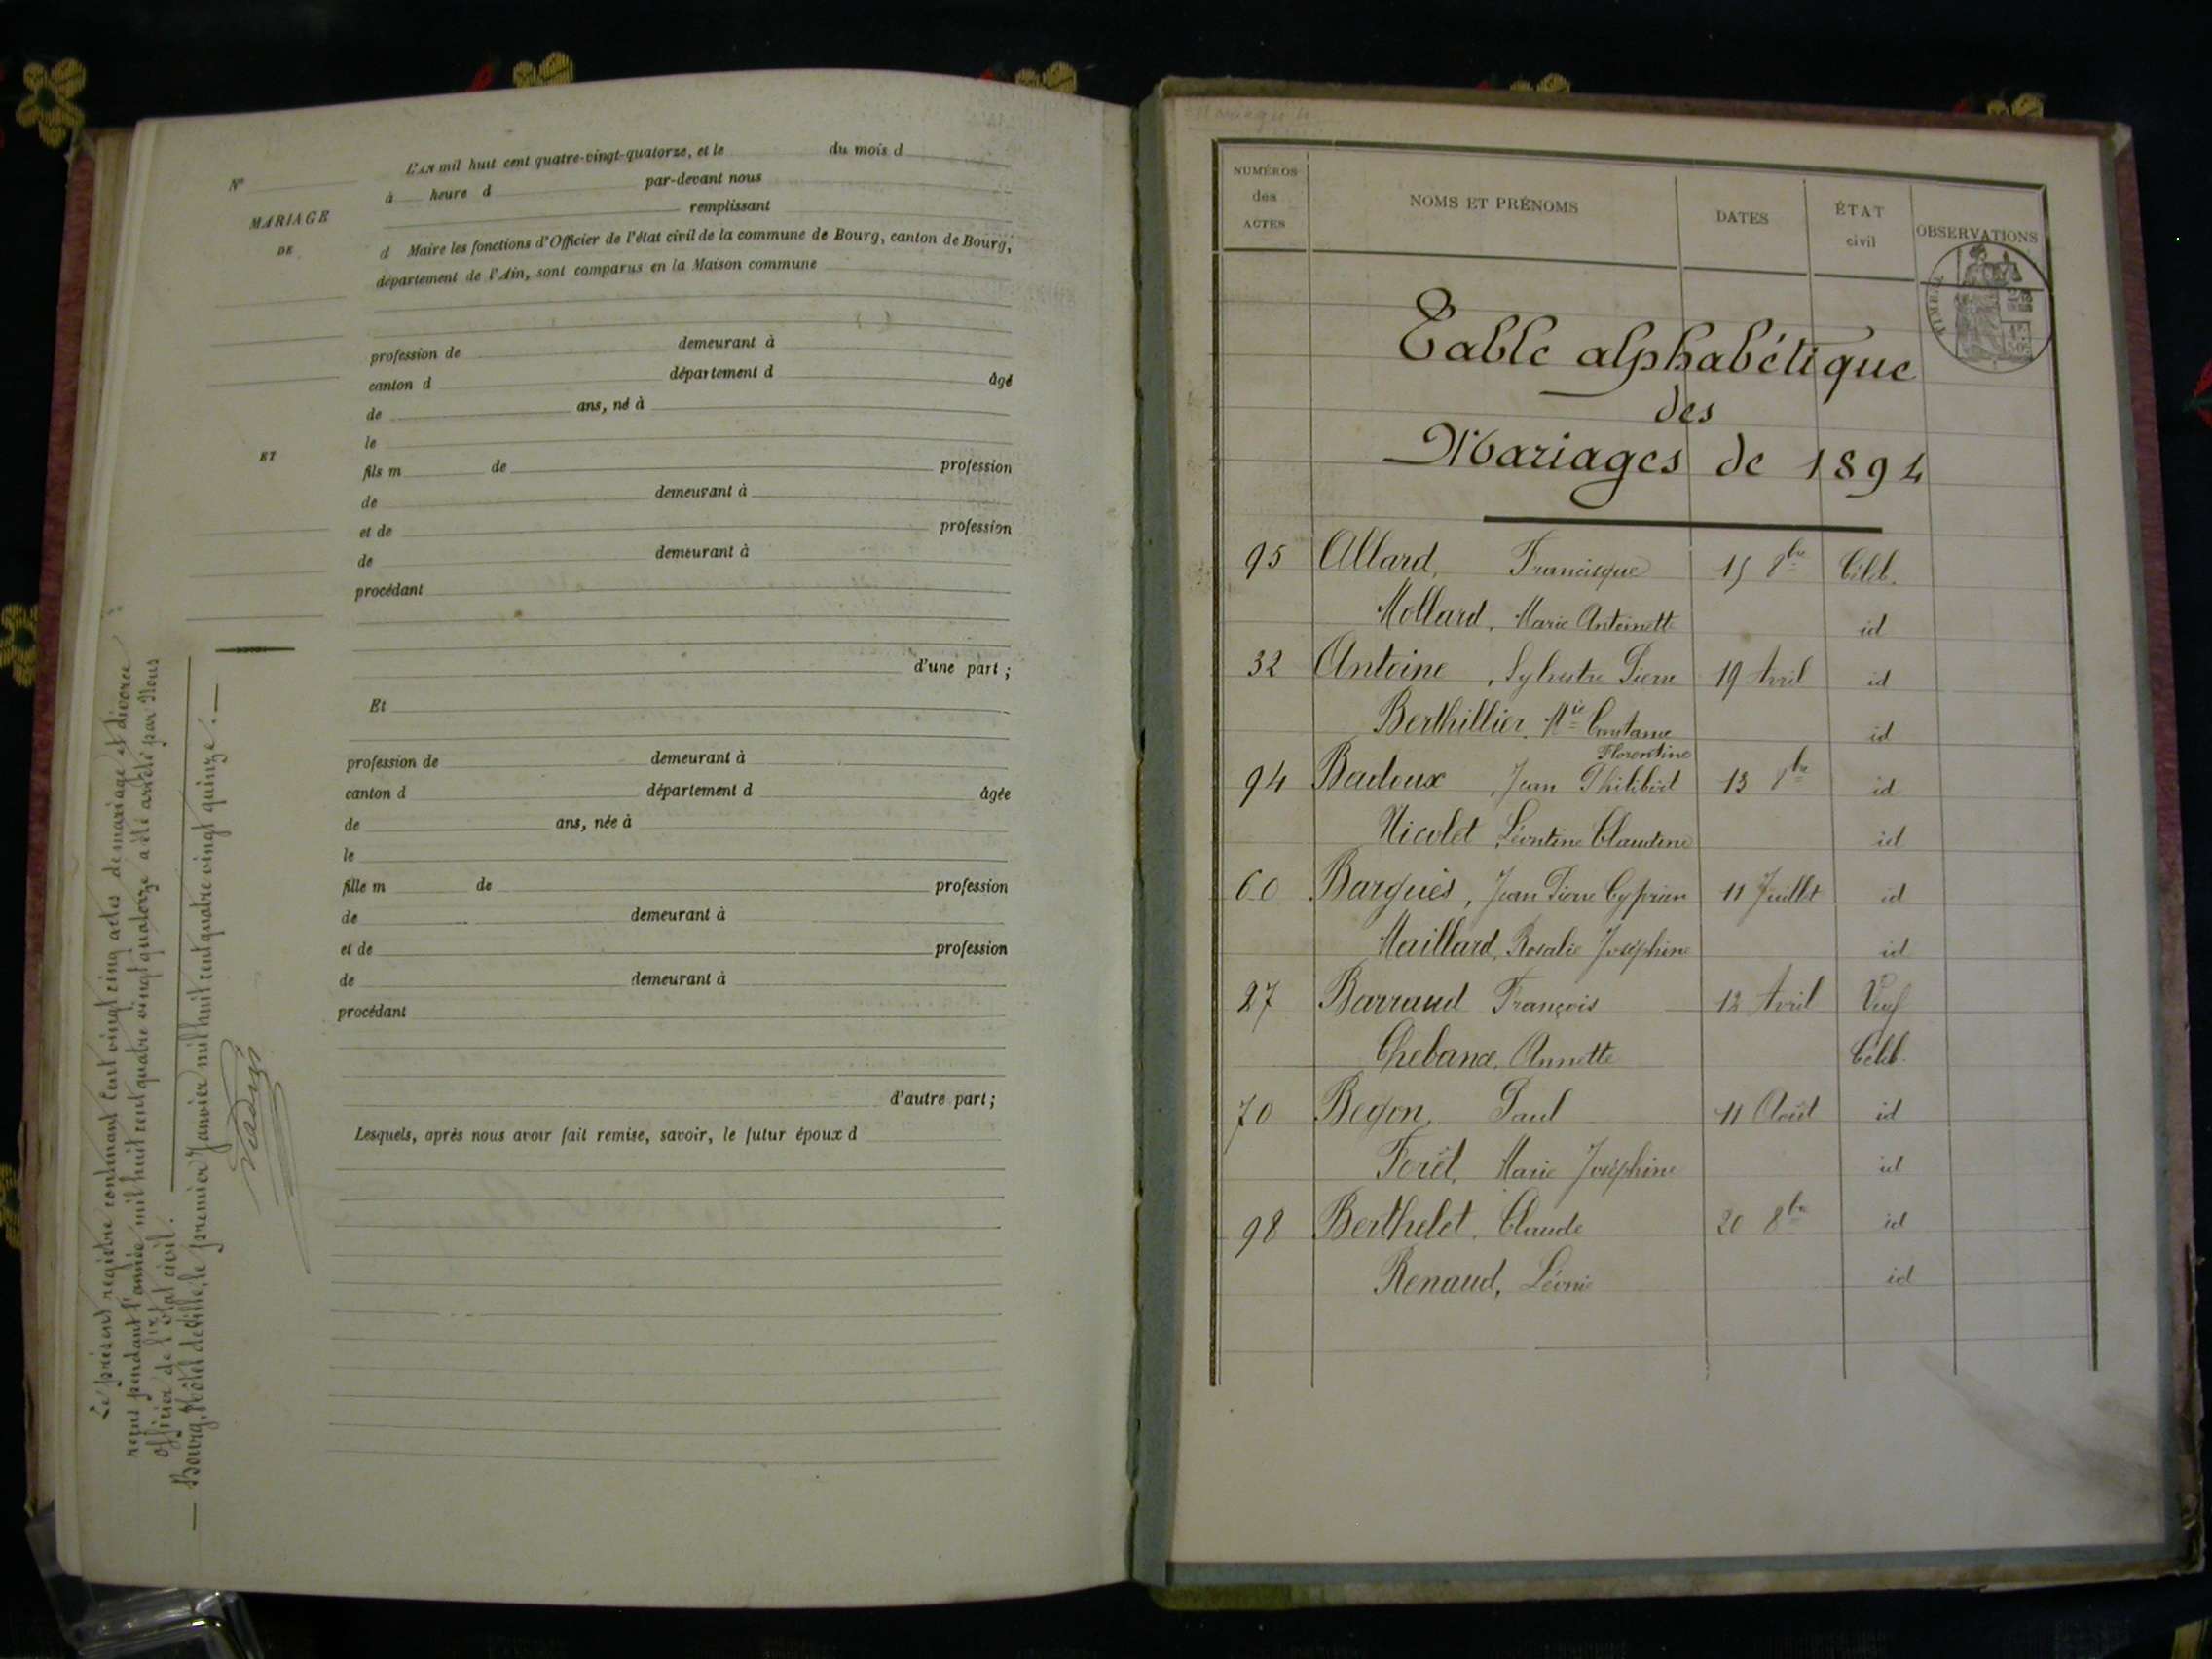 L'AN mil huit cent quatre-vingt-quatorze, et le du mois d
N°
à heure d par-devant nous
remplissant
MARIAGE
DE
d Maire les fonctions d'Officier de l'état civil de la commune de Bourg, canton de Bourg,
département de l'Ain, sont comparus en la Maison commune
profession de demeurant à
canton d département d âgé
de ans, né à
le
ET
fils m de profession
de demeurant à
et de profession
de demeurant à
procédant
d'une part ;
Et
profession de demeurant à
canton d département d âgée
de ans, née à
le
fille m de profession
de demeurant à
et de profession
de demeurant à
procédant
d'autre part ;
Lesquels, après nous avoir fait remise, savoir, le futur époux d
Le présent registre contenant Cent vingt cinq actes de mariage et divorce
reçus pendant l'année mil huit cent quatre vingt quatorze a été arrêté par Nous
officier de l'état civil.
— Bourg, Hôtel de Ville, le premier Janvier mil huit cent quatre vingt quinze. —
NUMÉROS des ACTES
NOMS ET PRÉNOMS
DATES
ÉTAT civil
OBSERVATIONS
TIMBRE
Table alphabétique
des
Mariages de 1894
95 Allard, Francisque 15 8bre Célib.
Mollard, Marie Antoinette id
32 Antoine, Sylvestre Pierre 19 Avril id
Berthillier, Mie Constance id
Florentine
94 Badoux, Jean Philibert 13 8bre id
Nicolet, Léontine Claudine id
60 Barguès, Jean Pierre Cyprien 11 Juillet id
Maillard, Rosalie Joséphine id
27 Barraud François 12 Avril Veuf
Chebance, Annette Célib.
70 Begon, Paul 11 Août id
Forêt, Marie Joséphine id
98 Berthelet, Claude 20 8bre id
Renaud, Léonie id